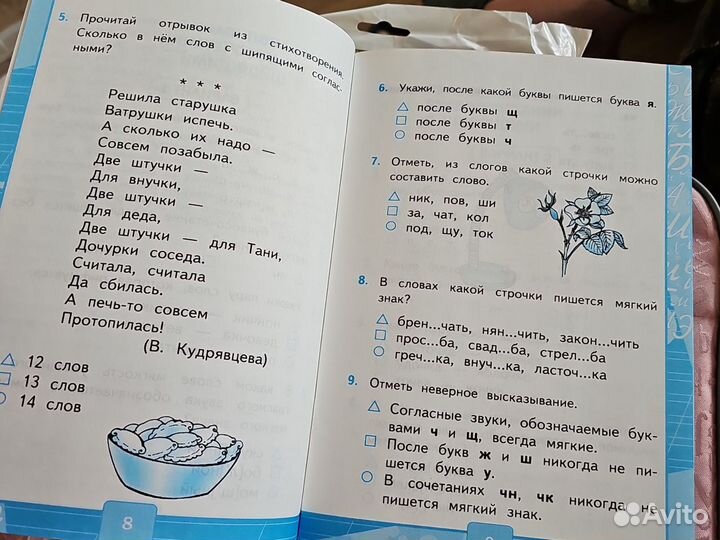 5. Прочитай отрывок из стихотворения.
Сколько в нём слов с шипящими соглас-
ными?
* * *
Решила старушка
Ватрушки испечь.
А сколько их надо —
Совсем позабыла.
Две штучки —
Для внучки,
Две штучки —
Для деда,
Две штучки — для Тани,
Дочурки соседа.
Считала, считала
Да сбилась.
А печь-то совсем
Протопилась!
(В. Кудрявцева)
12 слов
13 слов
14 слов
8
6. Укажи, после какой буквы пишется буква я.
после буквы щ
после буквы т
после буквы ч
7. Отметь, из слогов какой строчки можно
составить слово.
ник, пов, ши
за, чат, кол
под, щу, ток
8. В словах какой строчки пишется мягкий
знак?
брен...чать, нян...чить, закон...чить
прос...ба, свад...ба, стрел...ба
греч...ка, внуч...ка, ласточ...ка
9. Отметь неверное высказывание.
Согласные звуки, обозначаемые бук-
вами ч и щ, всегда мягкие.
После букв ж и ш никогда не пи-
шется буква у.
В сочетаниях чн, чк никогда не
пишется мягкий знак.
Avito